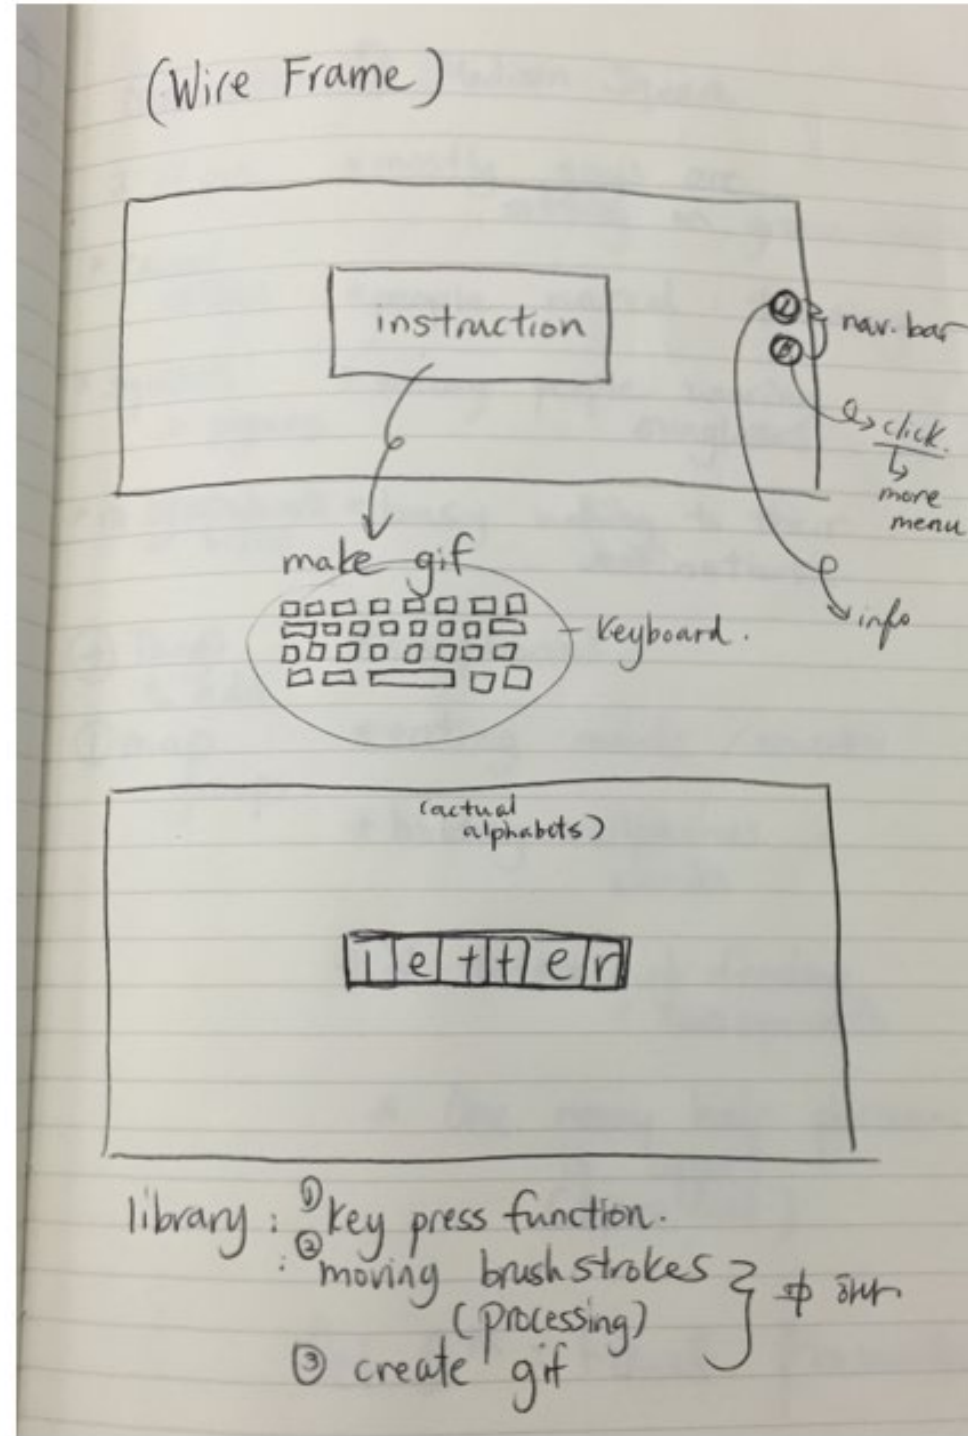 (Wire Frame)
instruction
nav. bar
click.
more
menu
make gif
keyboard.
info
(actual
alphabets)
letter
library : ① key press function.
: ② moving brush strokes
(processing)
③ create gif